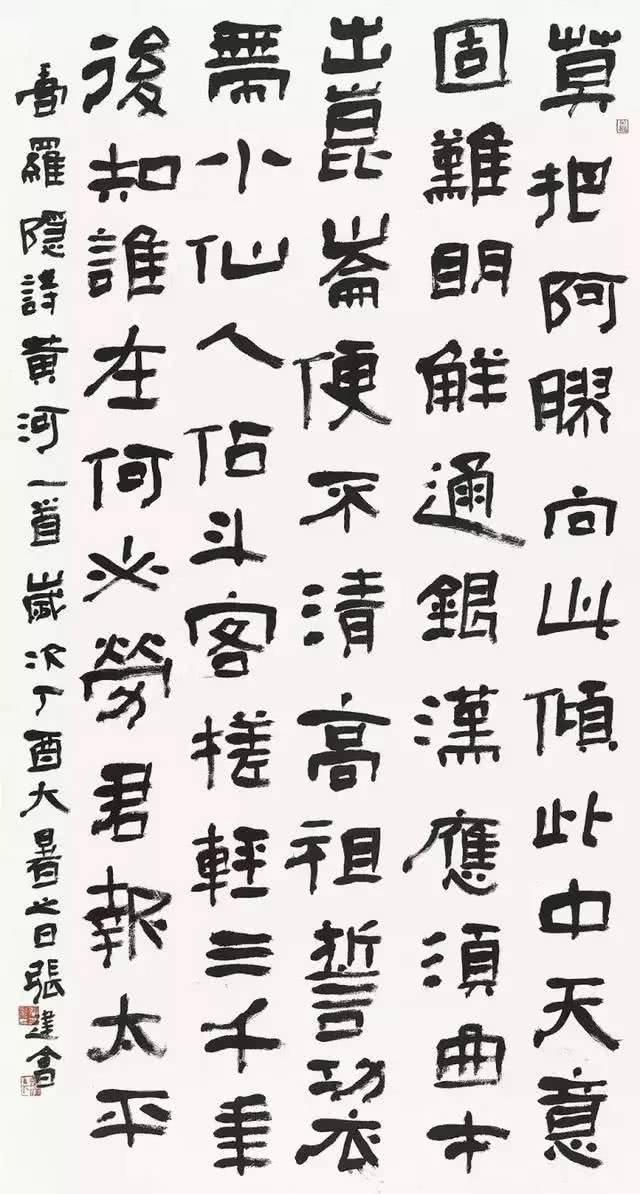 莫把阿膠向此傾此中天意
固難明解通銀漢應須曲才
出崑崙便不清高祖誓功衣
帶小仙人佔斗客槎輕三千年
後知誰在何必勞君報太平
書羅隱詩黃河一首歲次丁酉大暑之日張建會